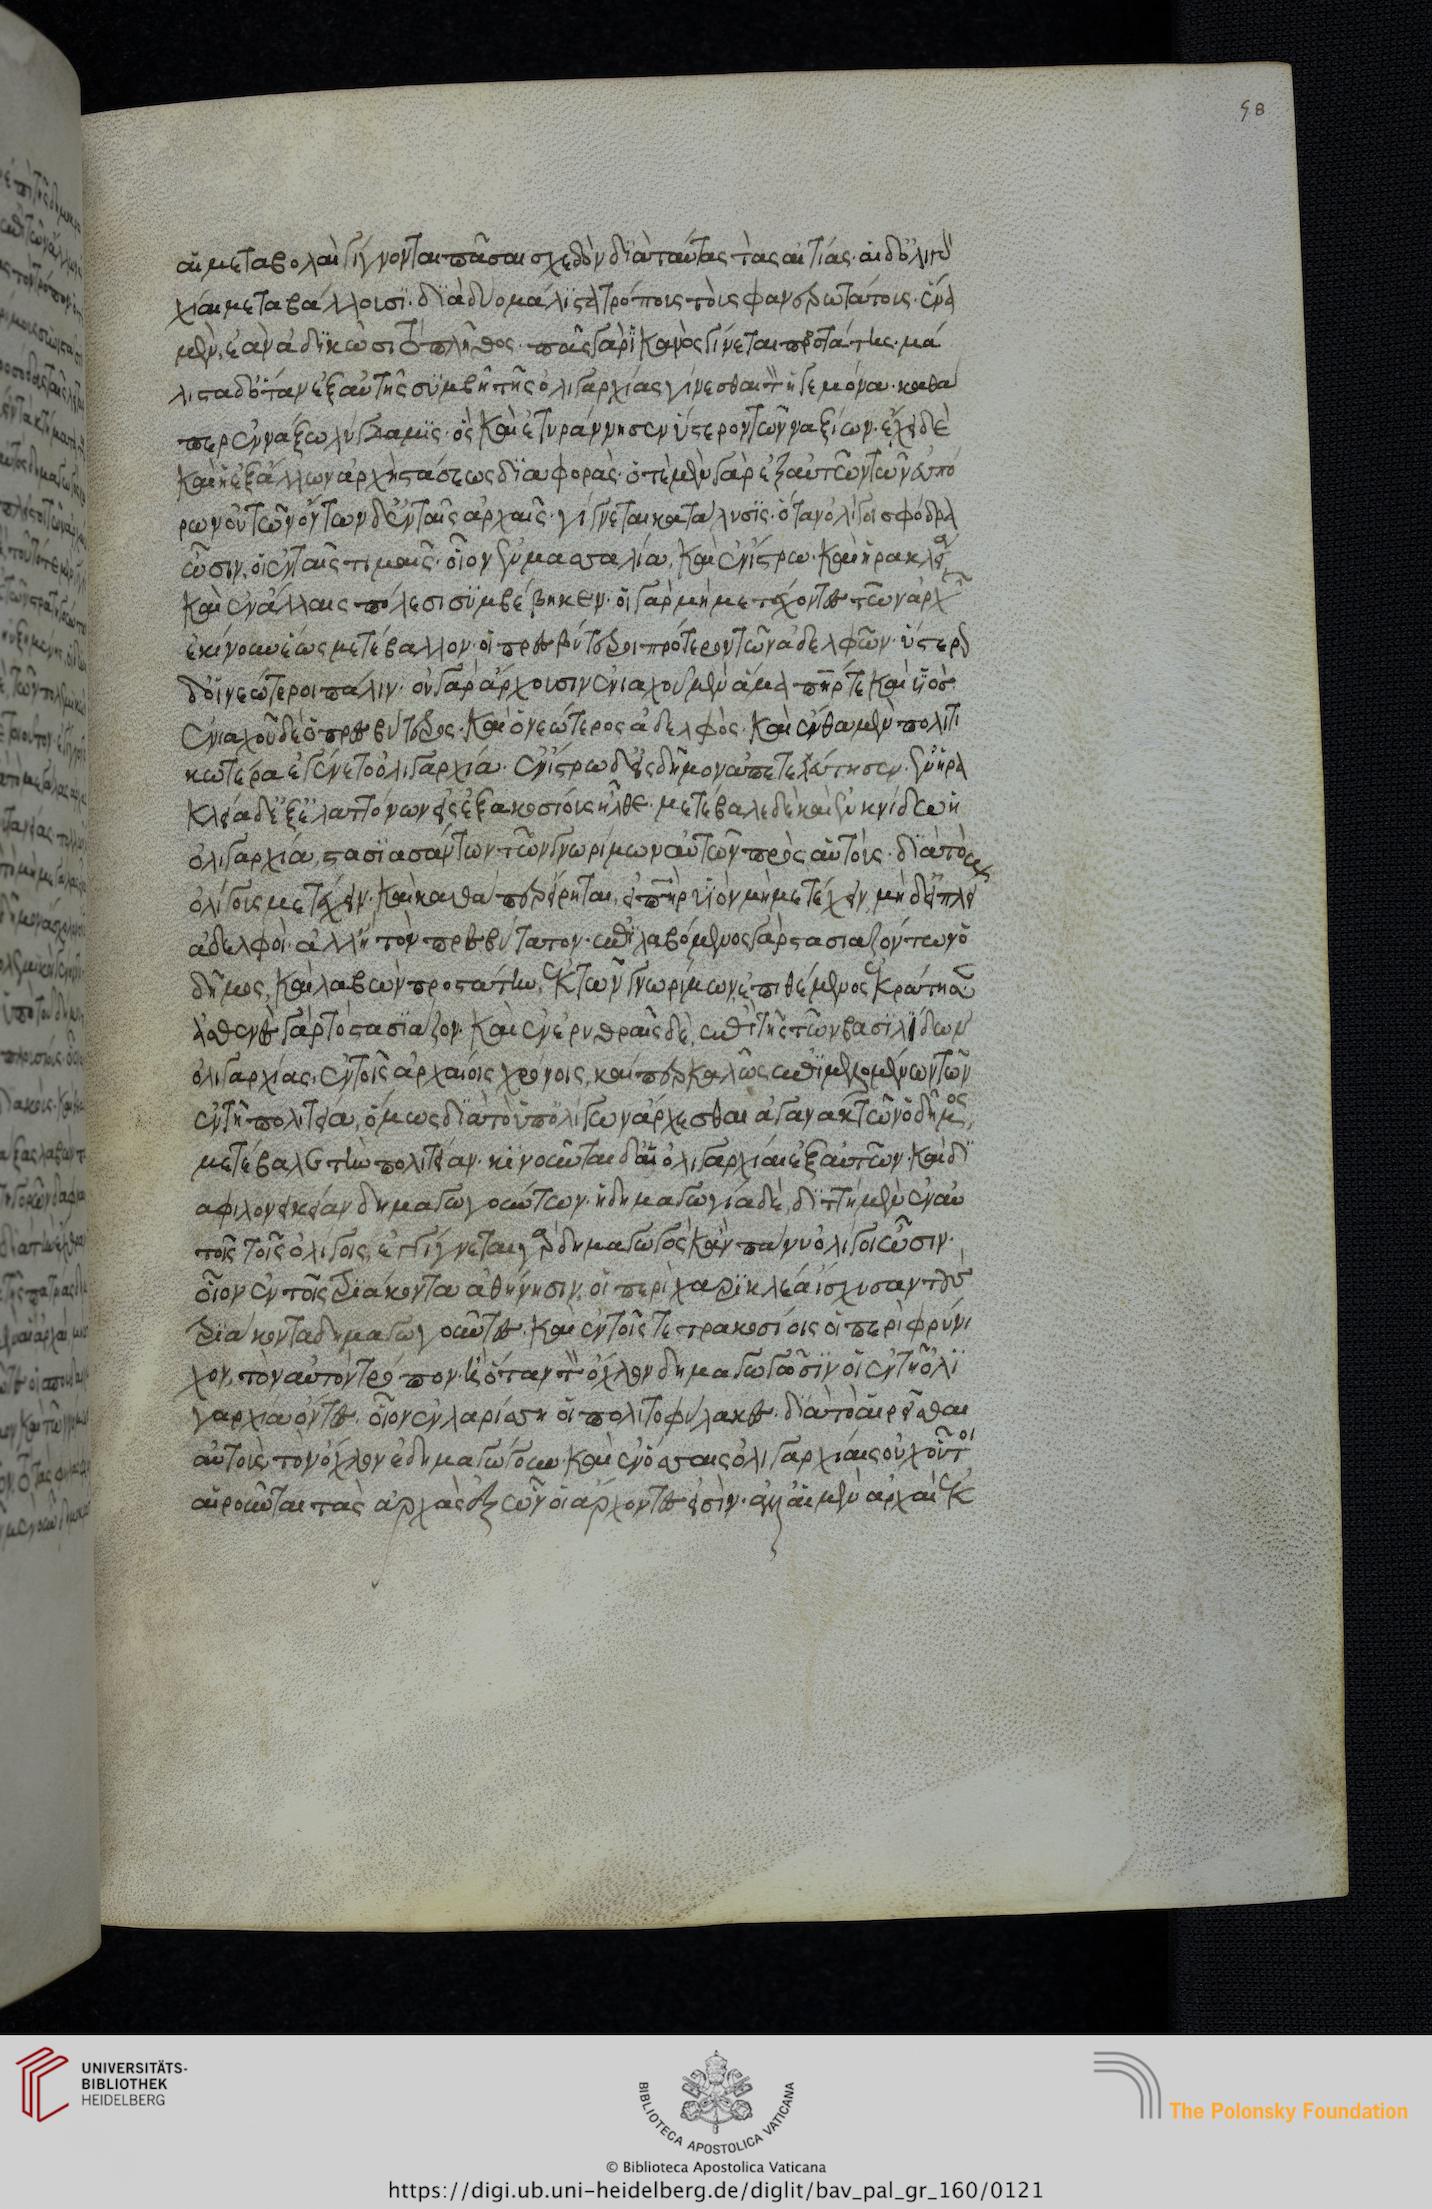 98
αἱ μεταβολαὶ γίγνονται πᾶσαι σχεδὸν διὰ ταύτας τὰς αἰτίας· αἱ δ' ὀλιγαρ
χίαι μεταβάλλουσι· διὰ δύο μάλιστα τρόποις τοῖς φανερωτάτοις· ἕνα
μὲν, ἐὰν ἀδικῶσι τὸ πλῆθος· πᾶς γὰρ ἱκανὸς γίνεται προστάτης· μά
λιστα δ' ὅταν ἐξ αὐτῆς συμβῇ τῆς ὀλιγαρχίας γίνεσθαι τὸν ἡγεμόνα· καθά
περ ἐν νάξῳ λύγδαμις· ὃς καὶ ἐτυράννησεν ὕστερον τῶν ναξίων· ἔχει δὲ
καὶ ἡ ἐξ ἄλλων ἀρχὴ στάσεως διαφοράς· ὁτὲ μὲν γὰρ ἐξ αὐτῶν τῶν εὐπό
ρων οὐ τῶν ὄντων δ' ἐν ταῖς ἀρχαῖς· γίγνεται κατάλυσις· ὅταν ὀλίγοι σφόδρα
ὦσιν, οἱ ἐν ταῖς τιμαῖς· οἷον ἐν μασσαλία, καὶ ἐν ἴστρω· καὶ ἡρακλεία
καὶ ἐν ἄλλαις πόλεσι συμβέβηκεν· οἱ γὰρ μὴ μετέχοντες τῶν ἀρχῶν
ἐκίνουν ἕως μετέβαλλον· οἱ πρεσβύτεροι πρότερον τῶν ἀδελφῶν· ὕστερον
δ' οἱ νεώτεροι πάλιν· οὐ γὰρ ἄρχουσιν ἐνιαχοῦ μὲν ἅμα πατήρ τε καὶ υἱός·
ἐνιαχοῦ δὲ ὁ πρεσβύτερος· καὶ ὁ νεώτερος ἀδελφός· καὶ ἔνθα μὲν πολιτι
κωτέρα ἐγένετο ὀλιγαρχία· ἐν ἴστρω δ' εἰς δῆμον ἀπετελεύτησεν· ἐν ἡρα
κλεία δ' ἐξ ἐλαττόνων εἰς ἑξακοσίους ἦλθε· μετέβαλε δὲ καὶ ἐν κνίδω ἡ
ὀλιγαρχία, στασιασάντων τῶν γνωρίμων αὐτῶν πρὸς αὑτούς· διὰ τὸ
ὀλίγους μετέχειν· καὶ καθάπερ εἴρηται, εἰ πατὴρ υἱὸν μὴ μετέχειν, μὴ δ' εἰ πλεί
ἀδελφοὶ· ἀλλ' ἢ τὸν πρεσβύτατον· ἐπιλαβόμενος γὰρ στασιαζόντων ὁ
δῆμος, καὶ λαβὼν προστάτην, ἐκ τῶν γνωρίμων, ἐπιθέμενος ἐκράτησεν
ἀσθενὲς γὰρ τὸ στασιάζον. καὶ ἐν ἐρυθραῖς δὲ, ἐπὶ τῆς τῶν βασιλιδων
ὀλιγαρχίας, ἐν τοῖς ἀρχαίοις χρόνοις, καίπερ καλῶς ἐπιμελομένων τῶν
ἐν τῇ πολιτεία, ὅμως διὰ τὸ ὑπ' ὀλίγων ἄρχεσθαι ἀγανακτῶν ὁ δῆμος,
μετέβαλε τὴν πολιτείαν. κινοῦνται δ' αἱ ὀλιγαρχίαι ἐξ αὑτῶν· καὶ δι
α φιλονεικείαν δημαγωγούντων· ἡ δημαγωγία δὲ, διττή μὲν ἐν αὐ
τοῖς τοῖς ὀλίγοις, ἐγγίγνεται γὰρ δημαγωγὸς κἂν πάνυ ὀλίγοι ὦσιν·
οἷον ἐν τοῖς τριάκοντα ἀθήνησιν, οἱ περὶ χαρικλέα ἴσχυσαν τοὺς
τριάκοντα δημαγωγοῦντες· καὶ ἐν τοῖς τετρακοσίοις οἱ περὶ φρύνι
χον, τὸν αὐτὸν τρόπον· καὶ ὅταν τὸν ὄχλον δημαγωγῶσιν οἱ ἐν τῇ ὀλι
γαρχία ὄντες. οἷον ἐν λαρίσση οἱ πολιτοφύλακες· διὰ τὸ αἱρεῖσθαι
αὐτοὺς τὸν ὄχλον ἐδημαγώγουν· καὶ ἐν ὅσαις ὀλιγαρχίαις οὐχ οὗτοι
αἱροῦνται τὰς ἀρχὰς ἐξ ὧν οἱ ἄρχοντες εἰσίν· ἀλλ' αἱ μὲν ἀρχαὶ ἐκ
UNIVERSITÄTS-
BIBLIOTHEK
HEIDELBERG
BIBLIOTECA APOSTOLICA VATICANA
© Biblioteca Apostolica Vaticana
The Polonsky Foundation
https://digi.ub.uni-heidelberg.de/diglit/bav_pal_gr_160/0121